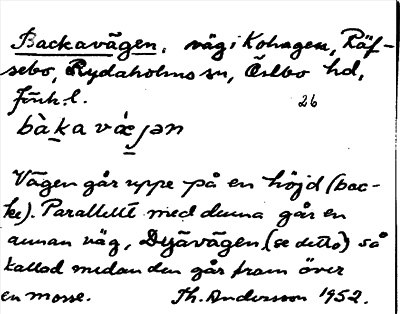 Backavägen, väg i Kohagen, Räf-
sebo, Rydaholms sn, Östbo hd,
Jönk. l. 26
bàka vǽjən
Vägen går uppe på en höjd (bac-
ke). Parallellt med denna går en
annan väg, Dyävägen (se detta) så
kallad medan den går fram över
en mosse. Th. Andersson 1952.